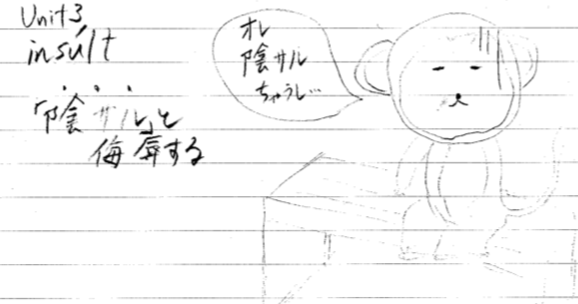 Unit3
insúlt
「陰サル」と
侮辱する
オレ
陰サル
ちゃうし…